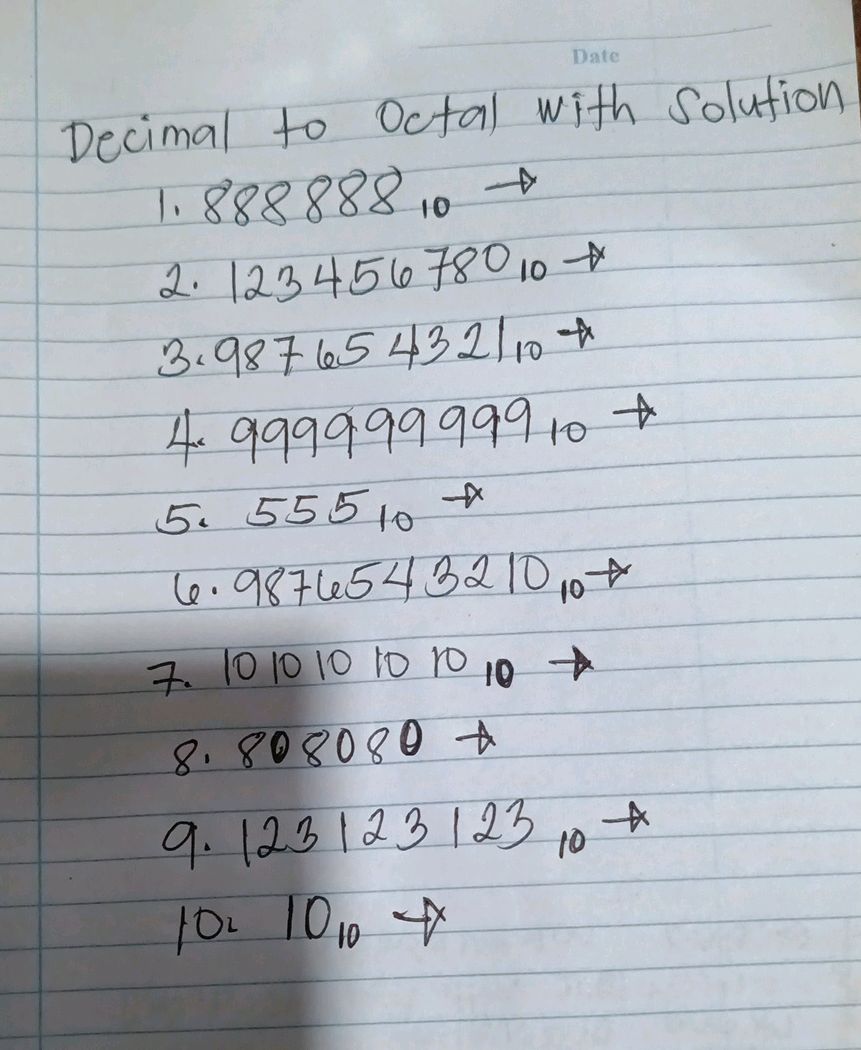 Date
Decimal to Octal with Solution
1. 888888 10 →
2. 123456780 10 →
3. 987654321 10 →
4. 999999999 10 →
5. 555 10 →
6. 9876543210 10 →
7. 1010101010 10 →
8. 808080 →
9. 123123123 10 →
10. 10 10 →